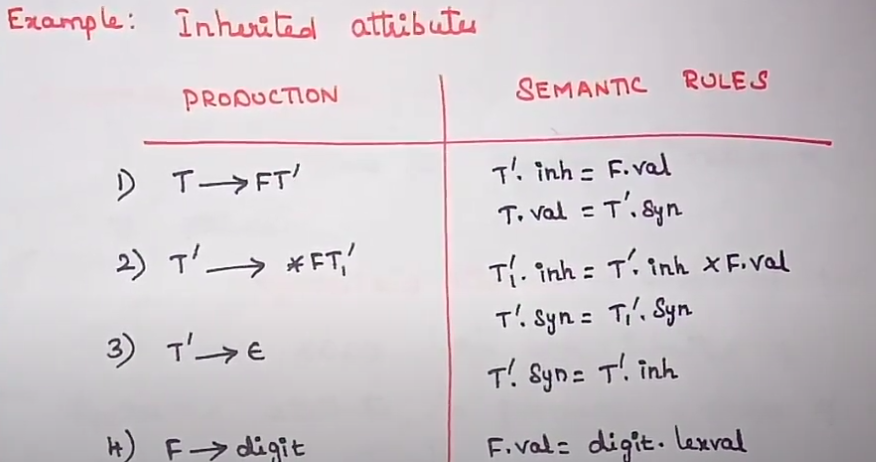 Example: Inherited attributes
PRODUCTION SEMANTIC RULES
1) T → FT' T'. inh = F.val
T. val = T'. Syn
2) T' → *FT₁' T₁'. inh = T'. inh × F.val
T'. Syn = T₁'. Syn
3) T' → ϵ
T'. Syn = T'. inh
4) F → digit F.val = digit. lexval